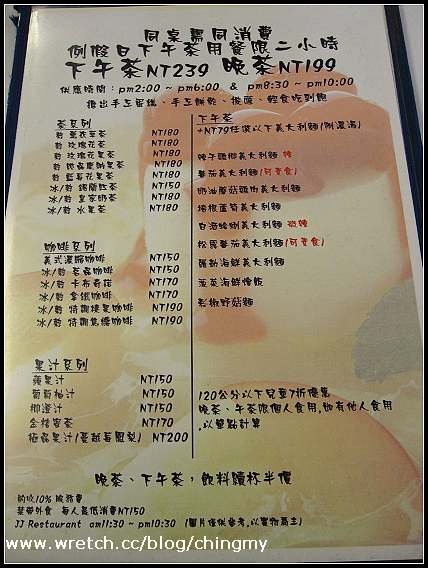 同桌需同消費
例假日下午茶用餐限二小時
下午茶NT239 晚茶NT199
供應時間：pm2:00 ~ pm6:00 & pm8:30 ~ pm10:00
推出手工蛋糕、手工餅乾、披薩、輕食吃到飽
茶系列
熱 薰衣草茶 NT180
熱 玫瑰花茶 NT180
熱 玫瑰花果茶 NT180
NT180
熱 藍莓花果茶 NT180
冰/熱 錫蘭紅茶 NT150
冰/熱 皇家奶茶 NT180
冰/熱 水果茶 NT180
咖啡系列
美式濃縮咖啡 NT150
冰/熱 招牌咖啡 NT150
冰/熱 卡布奇諾 NT170
冰/熱 拿鐵咖啡 NT170
冰/熱 特調榛果咖啡 NT190
冰/熱 特調焦糖咖啡 NT190
果汁系列
蘋果汁 NT150
葡萄柚汁 NT150
柳澄汁 NT150
金桔蜜茶 NT170
極品果汁(蔓越莓鳳梨) NT200
下午茶
+NT79任選以下義大利麵(附濃湯)
辣子雞柳義大利麵 辣
蕃茄義大利麵(可素食)
奶油蘑菇雞肉義大利麵
培根蘆筍義大利麵
白酒蛤蜊義大利麵 微辣
松露蕃茄義大利麵(可素食)
羅勒海鮮義大利麵
韭菜海鮮燴飯
彩椒野菇麵
120公分以下兒童7折優惠
晚茶、下午茶限個人食用,如有他人食用
,以單點計算
晚茶、下午茶，飲料續杯半價
酌收10% 服務費
禁帶外食 每人最低消費NT150
JJ Restaurant am11:30 ~ pm10:30 (圖片僅供參考,以實物為主)
www.wretch.cc/blog/chingmy